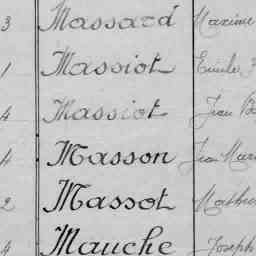 3 Massard Maxime
1 Massiot Emile
4 Massiot Jean
4 Masson Jean Marie
2 Massot Mathieu
4 Mauche Joseph